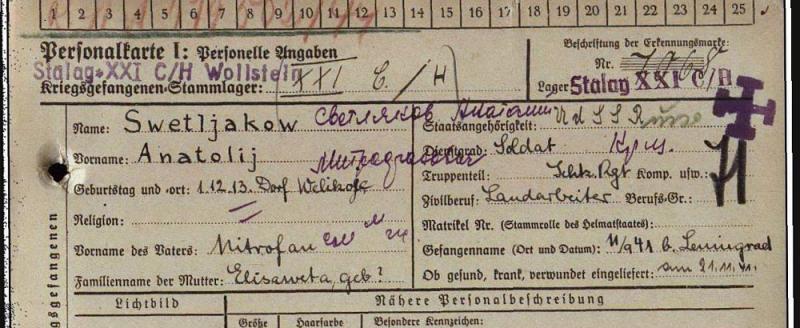 1 2 3 4 5 6 7 8 9 10 11 12 13 14 15 16 17 18 19 20 21 22 23 24 25
Personalkarte I: Personelle Angaben
Stalag XXI C/H Wollstein
Kriegsgefangenen-Stammlager: XXI C/H
Beschriftung der Erkennungsmarke:
Nr.
Lager: Stalag XXI C/H
Name: Swetljakow Светляков Анатолий
Vorname: Anatolij
Geburtstag und -ort: 1.12.13. Dorf
Religion: —
Vorname des Vaters: Mitrofan
Familienname der Mutter: Elisaweta, geb?
Staatsangehörigkeit: U d S S R
Dienstgrad: Soldat
Truppenteil: Schtz. Rgt Komp. usw.
Zivilberuf: Landarbeiter Berufs-Gr.:
Matrikel Nr. (Stammrolle des Heimatstaates):
Gefangenname (Ort und Datum): b. Leningrad
Ob gesund, krank, verwundet eingeliefert: am 21.11.41.
Lichtbild
Nähere Personalbeschreibung
Größe Haarfarbe Besondere Kennzeichen:
gsgefangenen